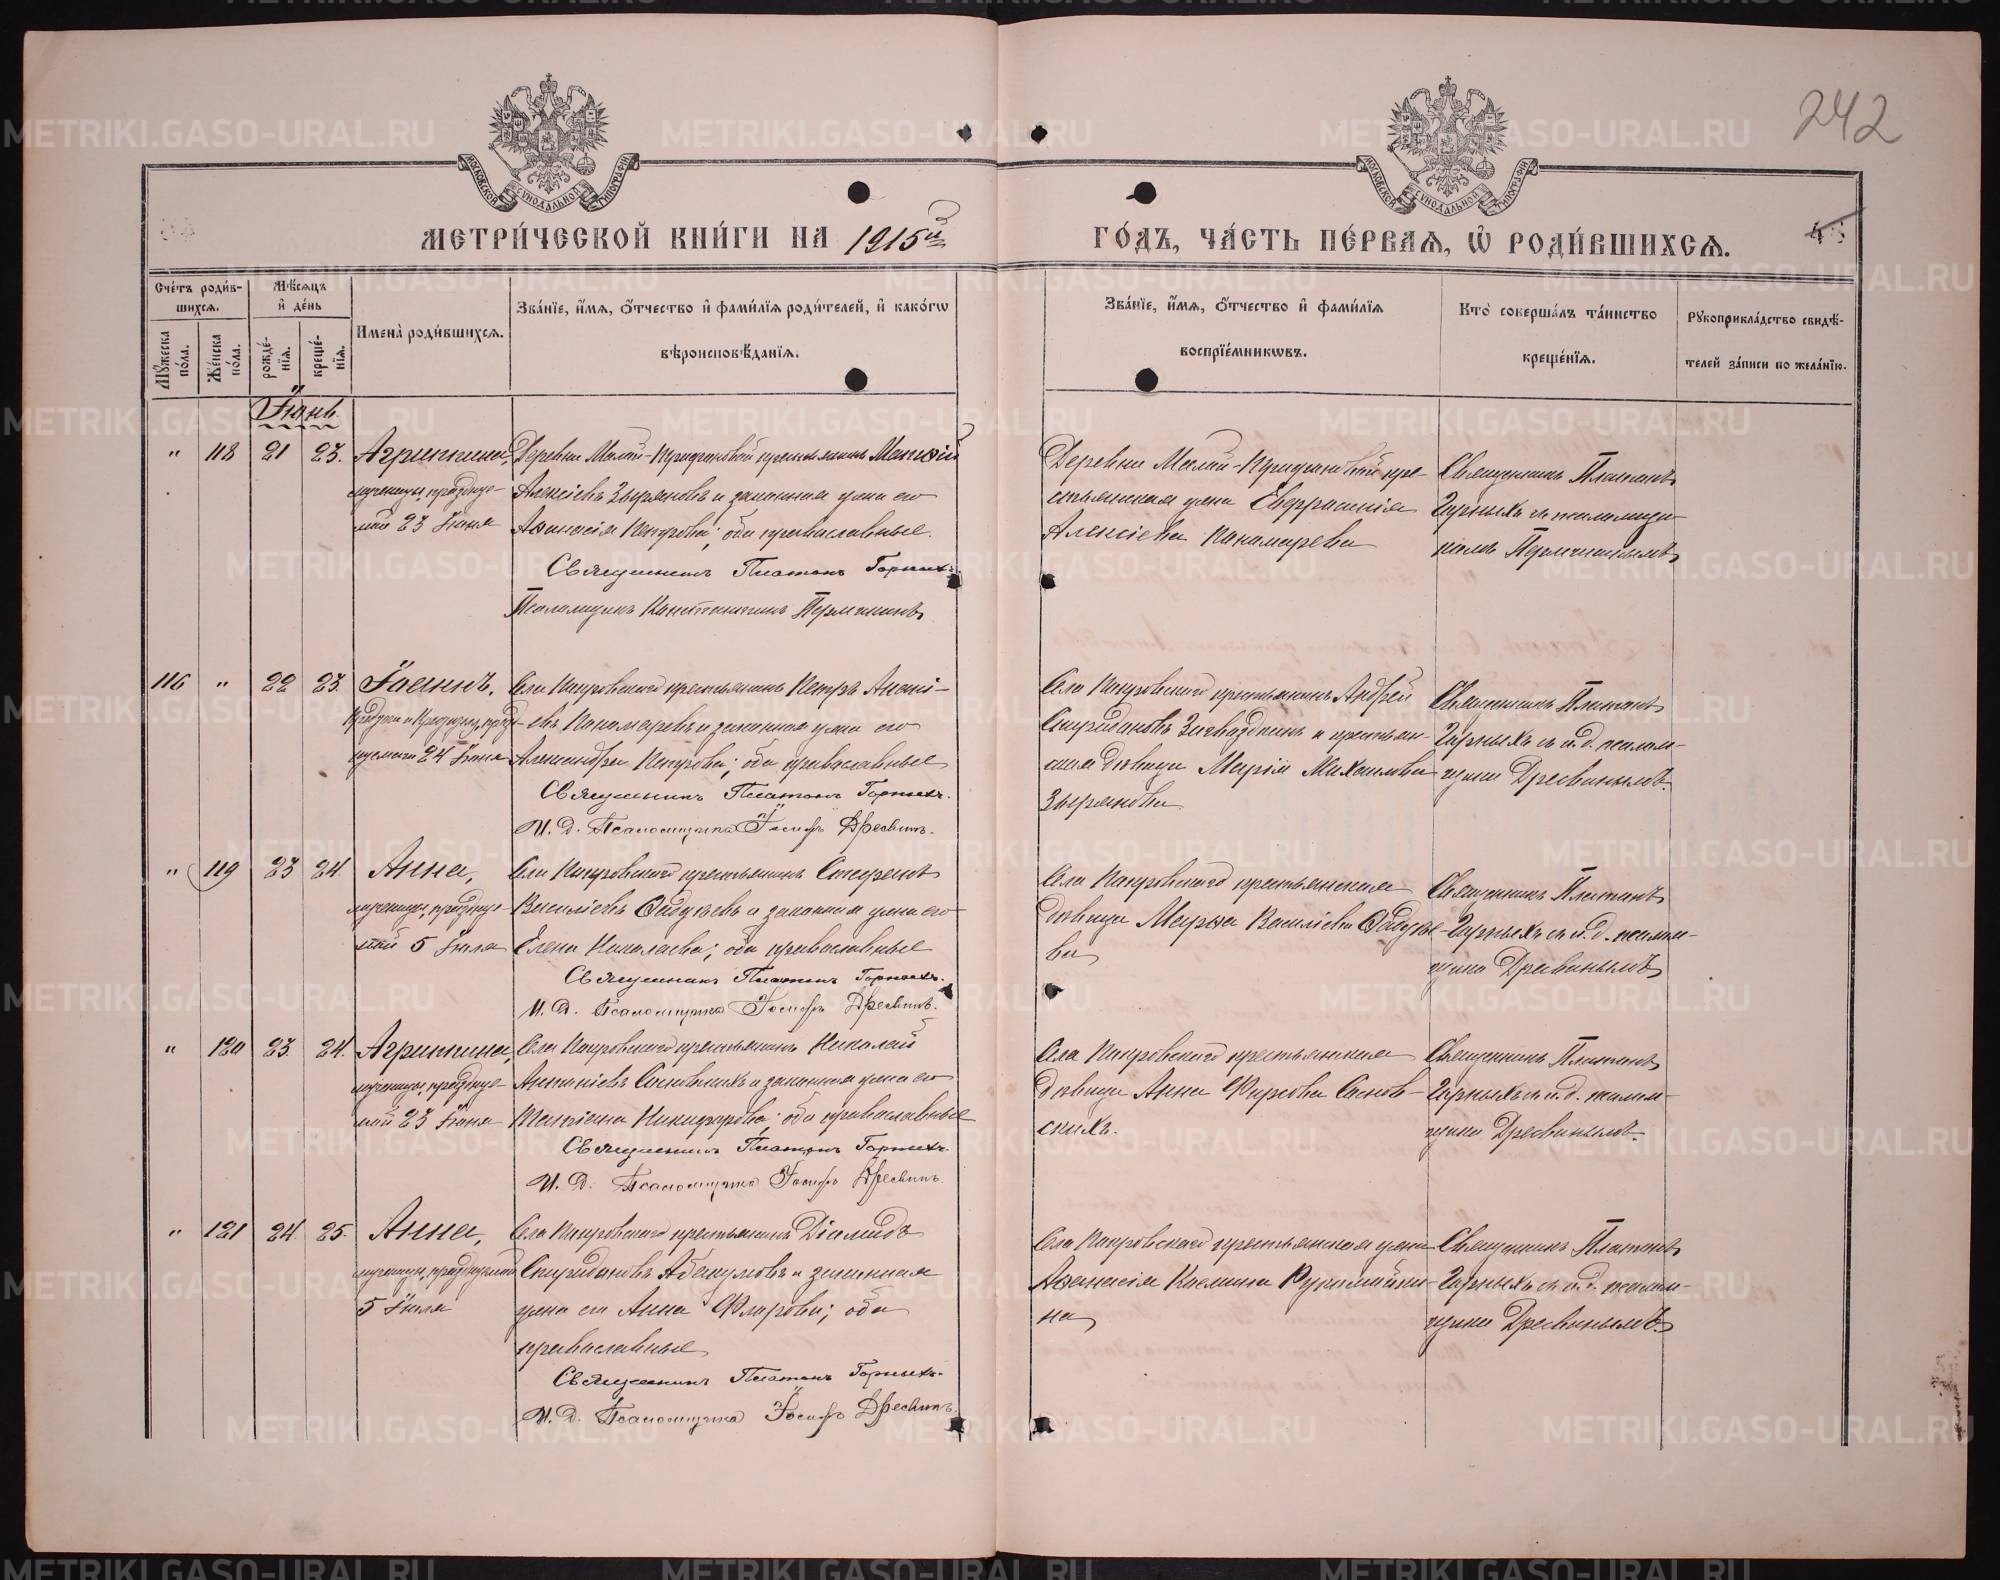 242
МОСКОВСКОЙ СУНОДАЛЬНОЙ ТИПОГРАФІИ
МОСКОВСКОЙ СУНОДАЛЬНОЙ ТИПОГРАФІИ
МЕТРИ́ЧЕСКОЙ КНИ́ГИ НА 1915й ГО́ДЪ, ЧА́СТЬ ПЕ́РВАѦ, Ѽ РОДИ́ВШИХСѦ.
Сче́тъ роди́вшихсѧ.
Мꙋ́жеска по́ла.
Же́нска по́ла.
Мѣ́сѧцъ и҆ де́нь
рожде́нїѧ.
креще́нїѧ.
Имена̀ роди́вшихсѧ.
Зва́нїе, и҆́мѧ, ѻ҆́тчество и҆ фами́лїѧ роди́телей, и҆ како́гѡ
вѣроисповѣ́данїѧ.
Зва́нїе, и҆́мѧ, ѻ҆́тчество и҆ фами́лїѧ
воспрїе́мникѡвъ.
Кто̀ соверша́лъ та́инство
креще́нїѧ.
Рꙋкоприкла́дство свидѣ́-
телей за́писи по жела́нїю.
Іюнь.
" 118 21 23.
Агриппина,
мученицы, празднуе-
мой 23 Іюня
Деревни Малой- крестьянинъ Матѳій
Алексіевъ Зыряновъ и законная жена его
Аѳанасія Петровна; оба православные.
Священникъ Платонъ Горныхъ.
Псаломщикъ Константинъ Пермяковъ
Деревни Малой- кре-
стьянская жена Евфрасинія
Алексіева Пономарева
Священникъ Платонъ
Горныхъ съ псаломщи-
комъ
116 " 22 23.
Іоаннъ,
Предтечи и Крестителя, празд-
нуемаго 24 Іюня
Села Покровскаго крестьянинъ Петръ Алексі-
евъ Пономаревъ и законная жена его
Александра Петровна; оба православные
Священникъ Платонъ Горныхъ.
И. Д. Псаломщика Іосифъ Дресвинъ.
Села Покровскаго крестьянинъ Андрей
Спиридоновъ Загвоздкинъ и крестьян-
ская дѣвица Марія Михаилова
Зырянова
Священникъ Платонъ
Горныхъ съ и.д. псалом-
щика Дресвинымъ.
" 119 23 24.
Анна,
мученицы, празднуе-
мой 5 Іюля
Села Покровскаго крестьянинъ Стефанъ
Василіевъ Авдукевъ и законная жена его
Елена Николаева; оба православные
Священникъ Платонъ Горныхъ.
И. Д. Псаломщика Іосифъ Дресвинъ.
Села Покровскаго крестьянская
дѣвица Марѳа Василіева
ва
Священникъ Платонъ
Горныхъ съ и.д. псалом-
щика Дресвинымъ
" 120 23. 24.
Агриппина,
мученицы, празднуе-
мой 23 Іюня
Села Покровскаго крестьянинъ Николай
Антоніевъ Сосновскихъ и законная жена его
Татіана Никифорова; оба православные
Священникъ Платонъ Горныхъ.
И. Д. Псаломщика Іосифъ Дресвинъ.
Села Покровскаго крестьянская
дѣвица Анна Фирсова Соснов-
скихъ.
Священникъ Платонъ
Горныхъ съ и.д. псалом-
щика Дресвинымъ.
" 121 24. 25.
Анна,
мученицы, празднуемой
5 Іюля
Села Покровскаго крестьянинъ Діомидъ
Спиридоновъ Абакумовъ и законная
жена его Анна Флорова; оба
православные
Священникъ Платонъ Горныхъ.
И. Д. Псаломщика Іосифъ Дресвинъ.
Села Покровскаго крестьянская жена
Аѳанасія Космина
на
Священникъ Платонъ
Горныхъ съ и.д. псалом-
щика Дресвинымъ.
METRIKI.GASO-URAL.RU